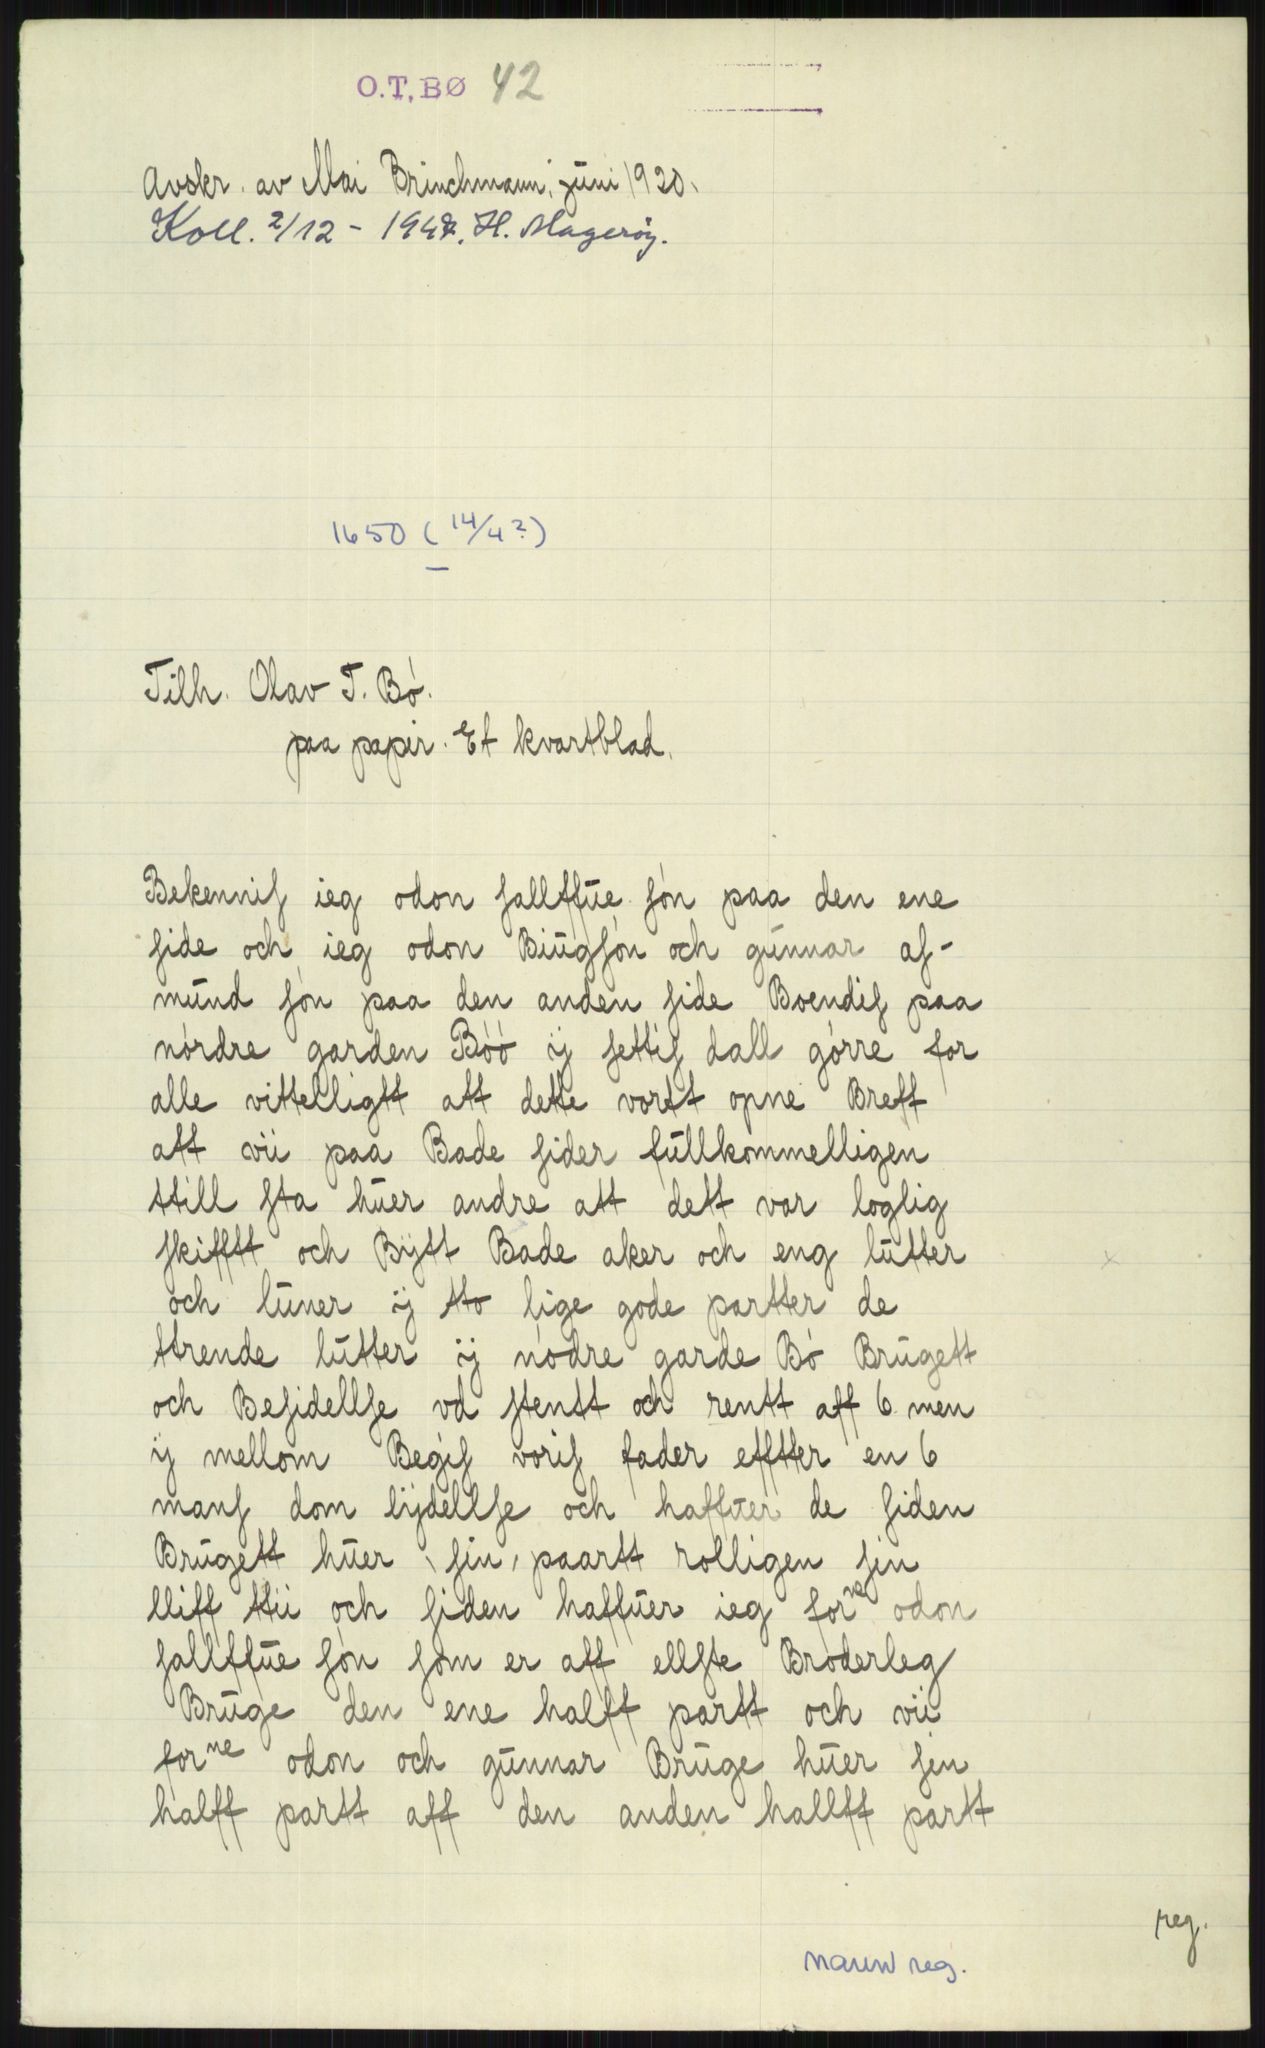 O.T. BØ 42
Avskr. av Mai Brinchmann, juni 1920.
Koll. 2/12 - 1947. H. Magerøy.
1650 (14/4?)
Tilh. Olav T. Bó.
paa papir. Et kvartblad.
Bekenniſ ieg odon ſallffue ſón paa den ene
ſide och ieg odon Biugſón och gunnar aſ-
mund ſón paa den anden ſide Boendiſ paa
nórdre garden Bóó ij ſettiſ dall górre for
alle vittelligtt att dette vortt opne Breff
att vii paa Bade ſider fullkommelligen
ttill ſta huer andre att dett var loglig
ſkifftt och Býtt Bade aker och eng lutter
och luner ij tto lige gode partter de
ttrende lutter ij nódre garde Bó Brugett
och Beſidellſe vd ſtentt och rentt aff 6 men
ij mellom Begiſ voriſ fader efftter en 6
manſ dom lijdellſe och haffuer de ſiden
Brugett huer ſin paartt rolligen ſin
lliff ttii och ſiden haffuer ieg forne odon
ſallffue ſón ſóm er aff ellſte Broderleg
Bruge den ene halff partt och vii
forne odon och gunnar Bruge huer ſin
halff partt aff den anden hallff partt
reg.
navn reg.